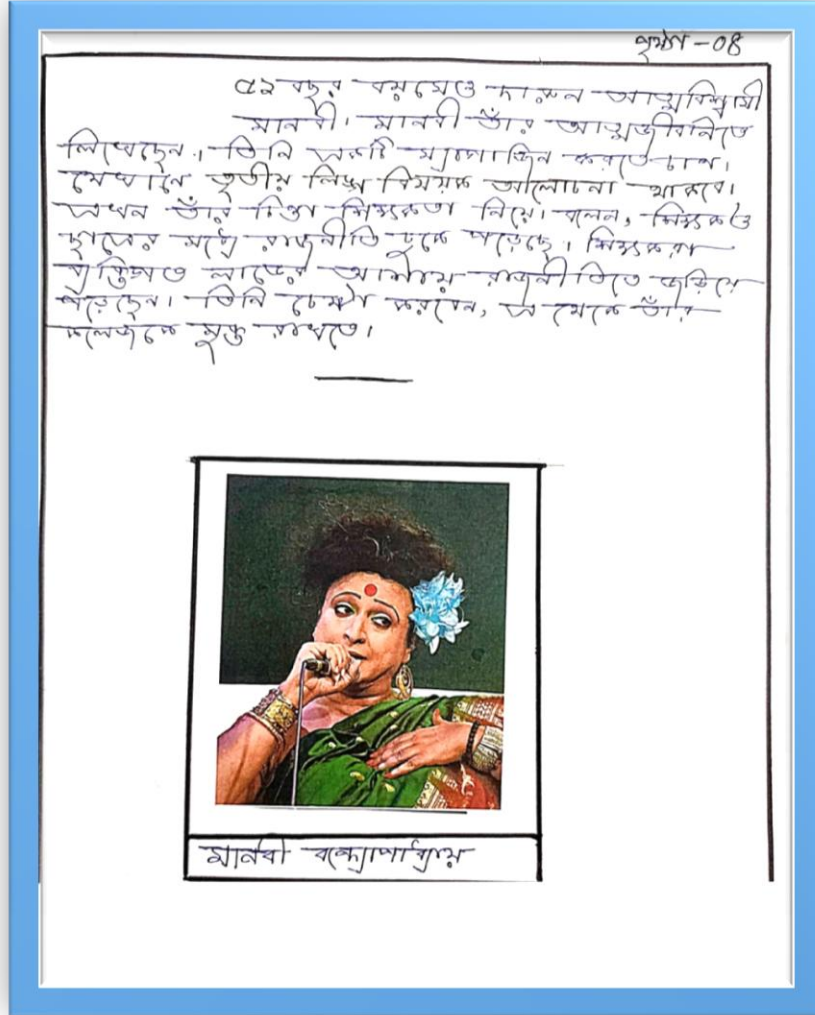 পৃষ্ঠা - 08
৫২ বছর বয়সেও দারুন আত্মবিশ্বাসী
মানবী। মানবী তাঁর আত্মজীবনিতে
লিখেছেন। তিনি একটি ম্যাগাজিন করতে চান।
সেখানে তৃতীয় লিঙ্গ বিষয়ক আলোচনা থাকবে।
এখন তাঁর চিন্তা শিক্ষকতা নিয়ে। বলেন, শিক্ষক ও
ছাত্রের মধ্যে রাজনীতি ঢুকে পড়েছে। শিক্ষকরা
ব্যক্তিগত লাভের আশায় রাজনীতিতে জড়িয়ে
পড়েছেন। তিনি চেষ্টা করবেন, এ থেকে তাঁর
কলেজকে মুক্ত রাখতে।
মানবী বন্দ্যোপাধ্যায়